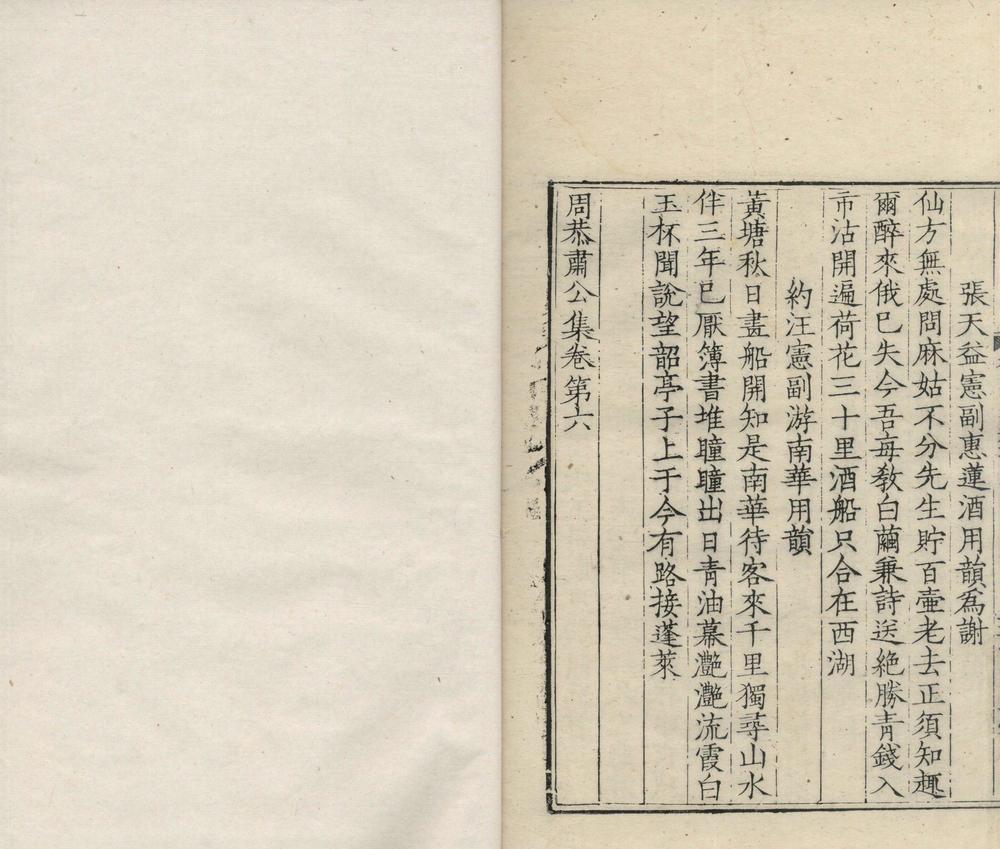 張天益憲副惠蓮酒用韻爲謝
仙方無處問麻姑不分先生貯百壷老去正須知趣
爾醉來俄巳失今吾每教白繭兼詩送絶勝青錢入
市沽開遍荷花三十里酒船只合在西湖
約汪憲副游南華用韻
黃塘秋日晝船開知是南華待客來千里獨尋山水
伴三年巳厭簿書堆瞳瞳出日青油幕灔灔流霞白
玉杯聞說望韶亭子上于今有路接蓬萊
周恭肅公集卷第六